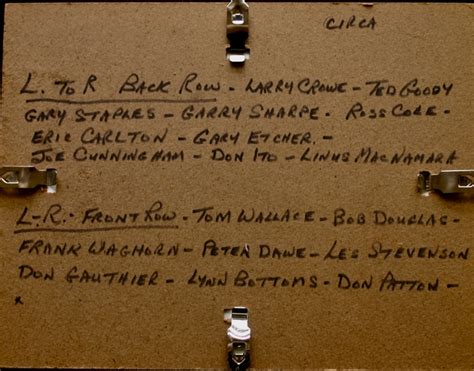 CIRCA
L. TO R BACK ROW - LARRY CROWE - TED GOODY
GARY STAPLES - GARRY SHARPE - ROSS COLE -
ERIC CARLTON - GARY ETCHER. -
JOE CUNNINGHAM - DON ITO - LINUS MACNAMARA
L-R. - FRONT ROW - TOM WALLACE - BOB DOUGLAS -
FRANK WAGHORN - PETER DAWE - LES STEVENSON
DON GAUTHIER - LYNN BOTTOMS - DON PATTON -
*